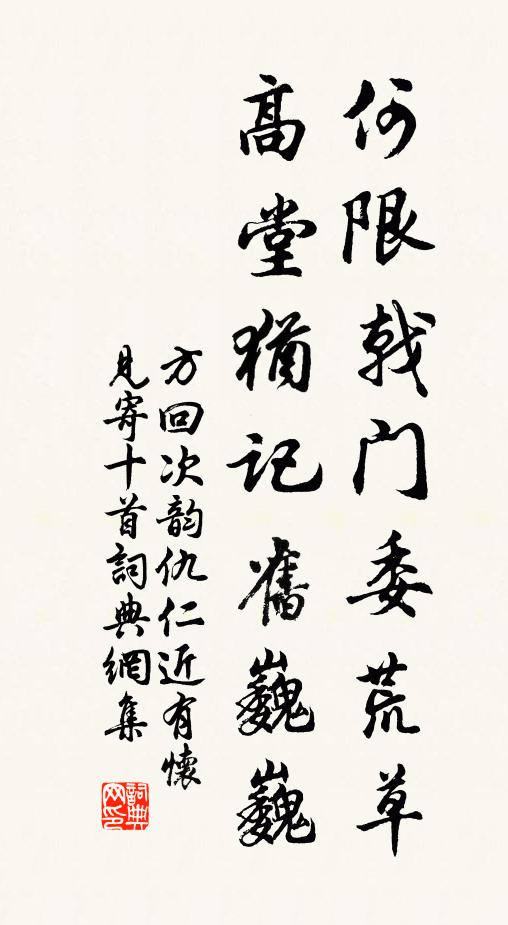 何限戟门委荒草
高堂犹记舊巍巍
方回次韵仇仁近有懷
見寄十首詞典網集
詞典网印